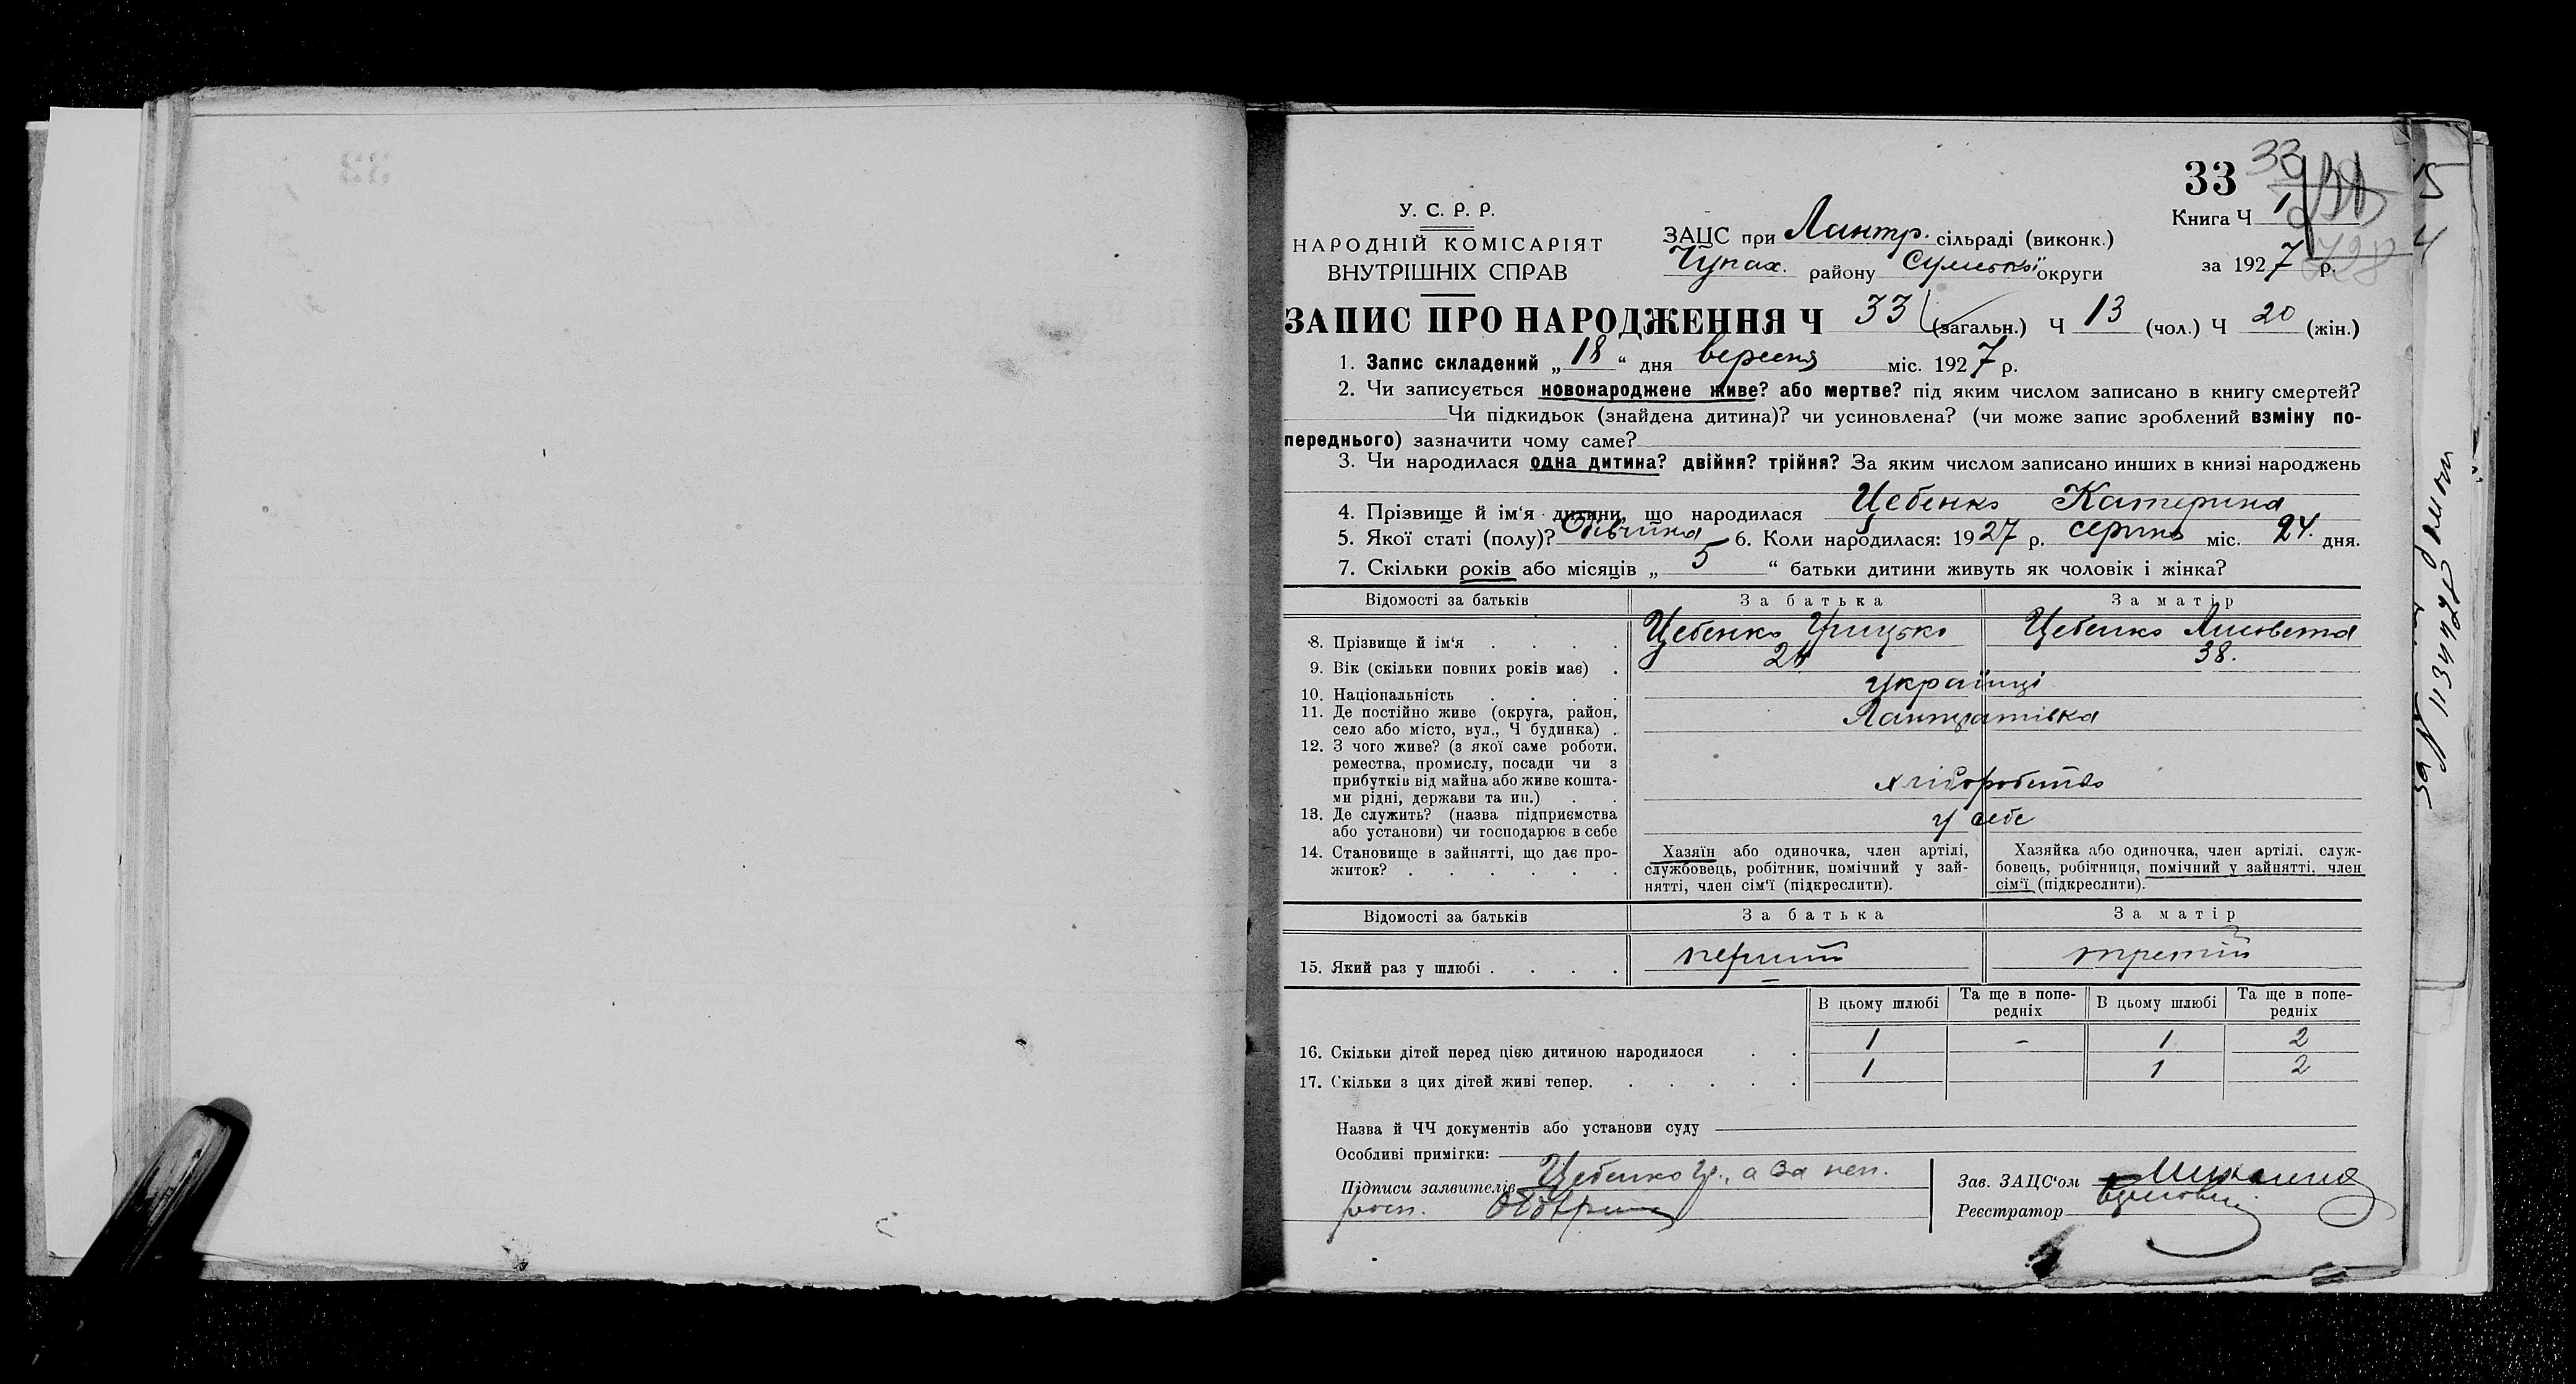 33 33
У. С. Р. Р.
НАРОДНІЙ КОМІСАРІЯТ
ВНУТРІШНІХ СПРАВ
Книга Ч 1
ЗАЦС при Лантр. сільраді (виконк.)
Чупах. району Сумської округи
за 1927 р.
ЗАПИС ПРО НАРОДЖЕННЯ Ч 33 (загальн.) Ч 13 (чол.) Ч 20 (жін.)
1. Запис складений „18“ дня вересня міс. 1927 р.
2. Чи записується новонароджене живе? або мертве? під яким числом записано в книгу смертей?
Чи підкидьок (знайдена дитина)? чи усиновлена? (чи може запис зроблений взміну по-
переднього) зазначити чому саме?
3. Чи народилася одна дитина? двійня? трійня? За яким числом записано инших в книзі народжень
4. Прізвище й ім‘я дитини, що народилася Цебенко Катерина
5. Якої статі (полу)? Дівчина 6. Коли народилася: 1927 р. серпня міс. 24. дня.
7. Скільки років або місяців „ 5 “ батьки дитини живуть як чоловік і жінка?
Відомості за батьків За батька За матір
8. Прізвище й ім‘я . . . . Цебенко Грицько Цебенко Лисовета
9. Вік (скільки повних років має) . 24 38.
10. Національність . . . . українці
11. Де постійно живе (округа, район,
село або місто, вул., Ч будинка) . Лантратівка
12. З чого живе? (з якої саме роботи,
ремества, промислу, посади чи з
прибутків від майна або живе кошта-
ми рідні, держави та ин.) . . хліборобство
13. Де служить? (назва підприємства
або установи) чи господарює в себе у себе
14. Становище в зайнятті, що дає про-
житок? . . . . . .
Хазяїн або одиночка, член артілі,
службовець, робітник, помічний у зай-
нятті, член сім‘ї (підкреслити).
Хазяйка або одиночка, член артілі, служ-
бовець, робітниця, помічний у зайнятті, член
сім‘ї (підкреслити).
Відомості за батьків За батька За матір
15. Який раз у шлюбі . . . . перший третій
В цьому шлюбі Та ще в попе-
редніх В цьому шлюбі Та ще в попе-
редніх
16. Скільки дітей перед цією дитиною народилося . . 1 - 1 2
17. Скільки з цих дітей живі тепер. . . . . . 1 1 2
Назва й ЧЧ документів або установи суду
Особливі примітки:
Підписи заявителів Цебенко Гр., а за неп.
росп.
Зав. ЗАЦС‘ом
Реєстратор